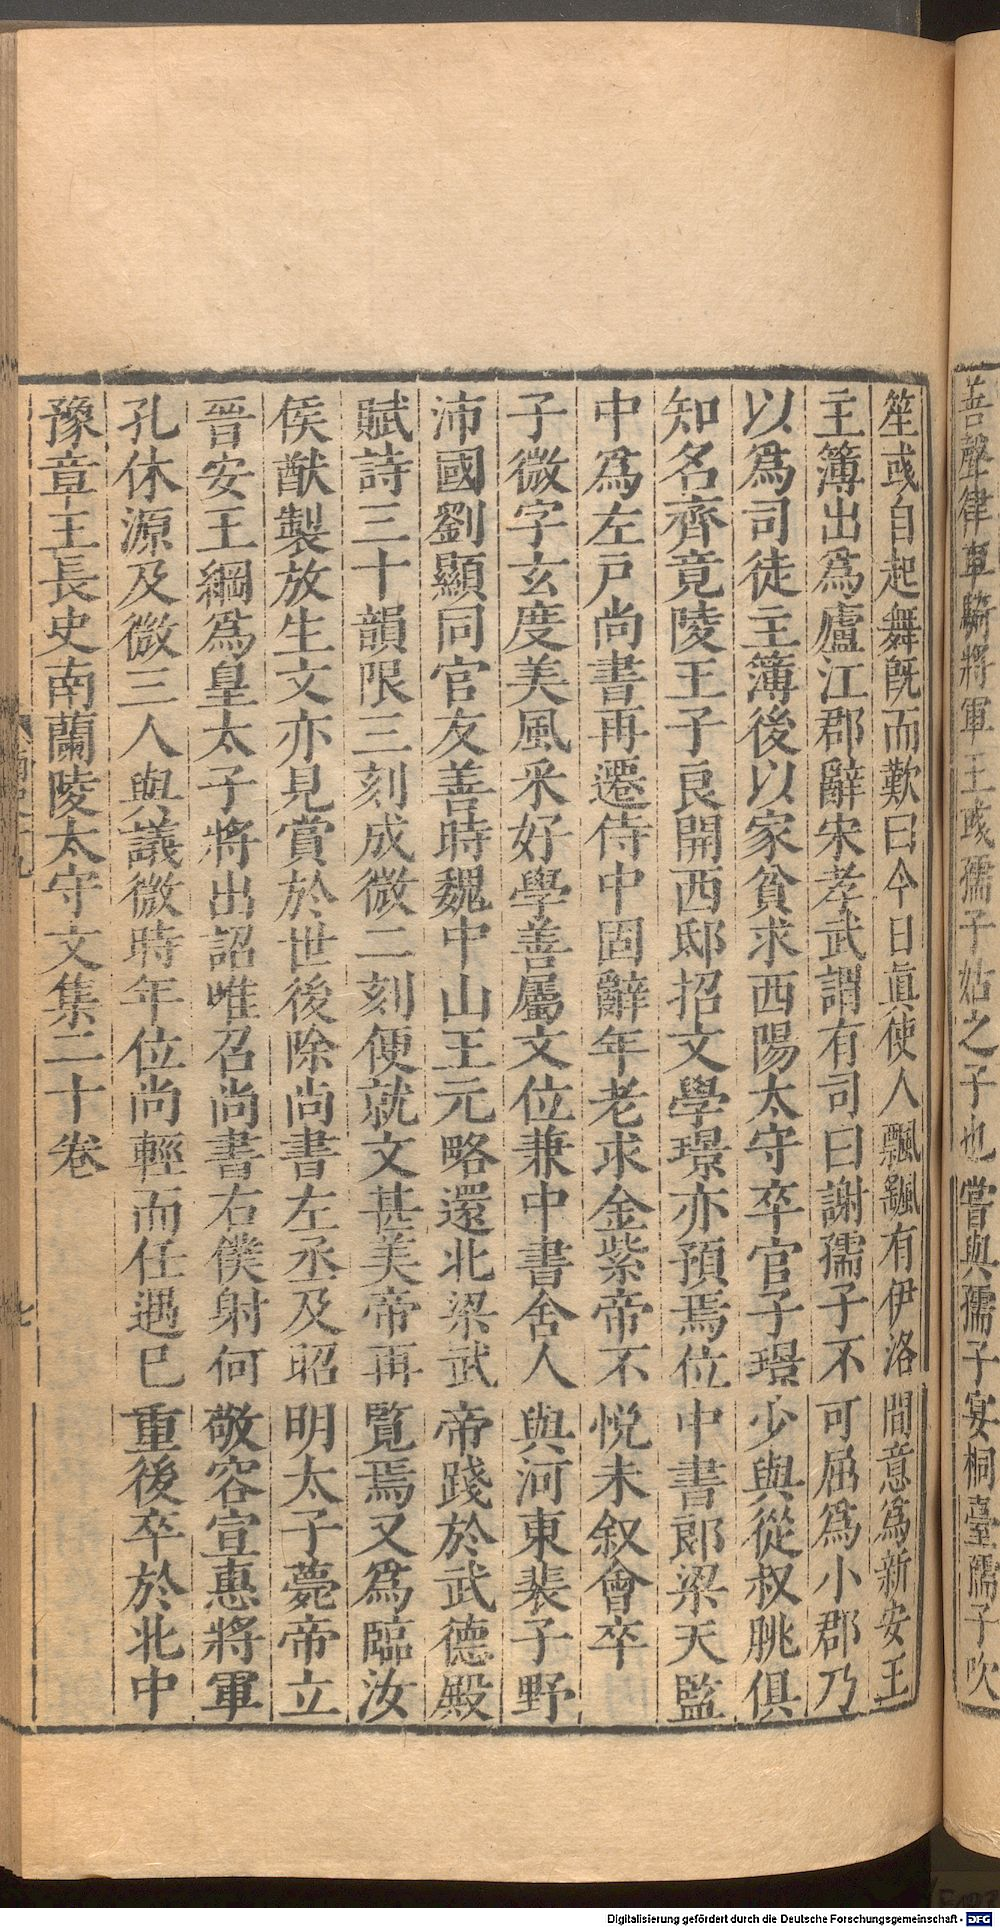 善聲律車騎將軍王彧孺子姑之子也嘗與孺子宴桐臺孺子吹
笙彧自起舞旣而歎曰今日眞使人飄颻有伊洛間意爲新安王
主簿出爲廬江郡辭宋孝武謂有司曰謝孺子不可屈爲小郡乃
以爲司徒主簿後以家貧求西陽太守卒官子璟少與從叔朓俱
知名齊竟陵王子良開西邸招文學璟亦預焉位中書郎梁天監
中爲左戸尚書再遷侍中固辭年老求金紫帝不悅未叙會卒
子微字玄度美風采好學善屬文位兼中書舍人與河東裴子野
沛國劉顯同官友善時魏中山王元略還北梁武帝踐於武德殿
賦詩三十韻限三刻成微二刻便就文甚美帝再覽焉又爲臨汝
侯猷製放生文亦見賞於世後除尚書左丞及昭明太子薨帝立
晉安王綱爲皇太子將出詔唯召尚書右僕射何敬容宣惠將軍
孔休源及微三人與議微時年位尚輕而任遇已重後卒於北中
豫章王長史南蘭陵太守文集二十卷
Digitalisierung gefördert durch die Deutsche Forschungsgemeinschaft - DFG